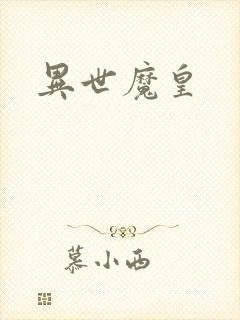 異世魔皇
慕小西